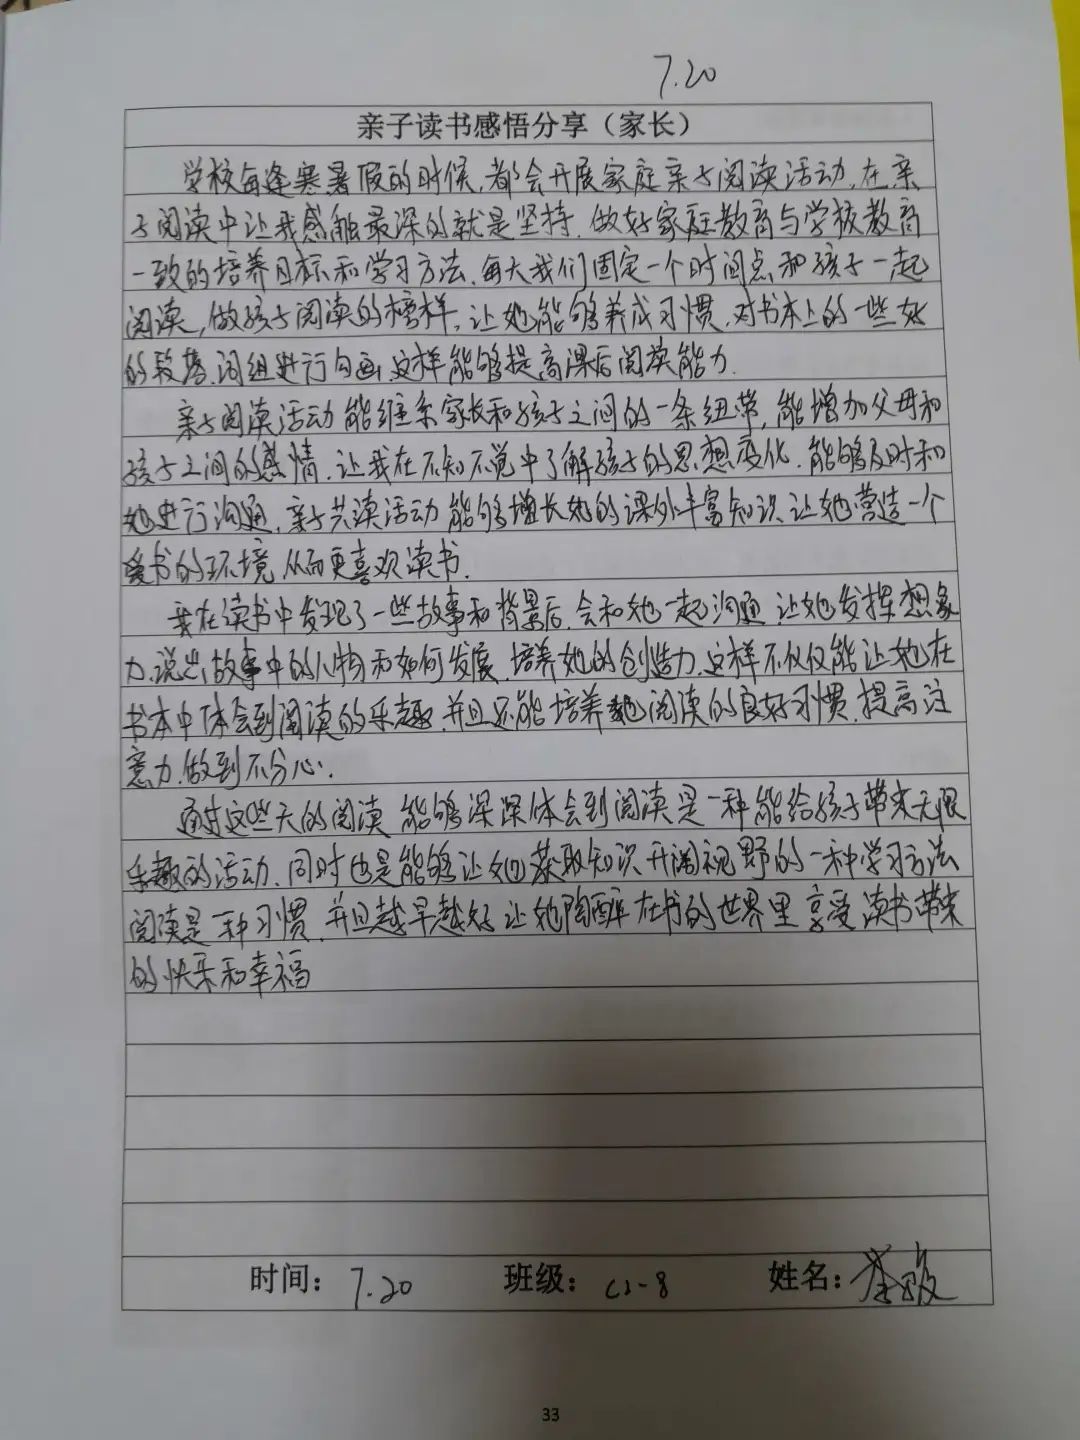 7.20
亲子读书感悟分享（家长）
学校每逢寒暑假的时候，都会开展家庭亲子阅读活动，在亲
子阅读中让我感触最深的就是坚持．做好家庭教育与学校教育
一致的培养目标和学习方法．每天我们固定一个时间点和孩子一起
阅读，做孩子阅读的榜样，让她能够养成习惯．对书本上的一些好
的段落．词组进行勾画．这样能够提高课后阅读能力．
亲子阅读活动能维系家长和孩子之间的一条纽带，能增加父母和
孩子之间的感情．让我在不知不觉中了解孩子的思想变化．能够及时和
她进行沟通．亲子共读活动能够增长她的课外丰富知识．让她营造一个
爱书的环境．从而更喜欢读书．
我在读书中发现了一些故事和背景后．会和她一起沟通．让她发挥想象
力．说出故事中的人物和如何发展．培养她的创造力．这样不仅仅能让她在
书本中体会到阅读的乐趣．并且还能培养她阅读的良好习惯．提高注
意力．做到不分心．
通过这些天的阅读 能够深深体会到阅读是一种能给孩子带来无限
乐趣的活动．同时也是能够让她获取知识 开阔视野的一种学习方法
阅读是一种习惯．并且越早越好 让她陶醉在书的世界里 享受读书带来
的快乐和幸福
时间：7.20 班级：C2-8 姓名：
33